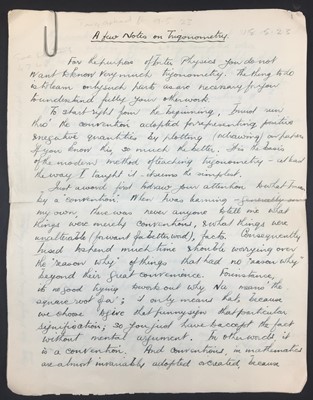 15.5.25
A few Notes on Trigonometry.
For the purposes of Inter Physics you do not
want to know very much trigonometry. The thing to do
is to learn only such parts as are necessary for you
to understand fully your other work.
To start right from the beginning, I must
the convention adopted for representing positive
& negative quantities by plotting (or drawing) on paper.
If you know this, so much the better. It is the basis
of the modern method of teaching trigonometry - at least
the way I taught it & seems the simplest.
Just a word first to draw your attention to what I mean
by a 'convention'. When I was learning - generally on
my own, there was never anyone to tell me what
things were merely conventions, & what things were
unalterable (for want of a better word), facts. Consequently
I used to spend much time & trouble worrying over
the "reason why" of things that had no "reason why"
beyond their great convenience. For instance,
it is no good trying to work out why √a means "the
square root of a"; it only means that, because
we choose to give that funny sign that particular
signification; so you just have to accept the fact
without mental argument. In other words it
is a convention. And conventions, in mathematics
are almost invariably adopted or created, because